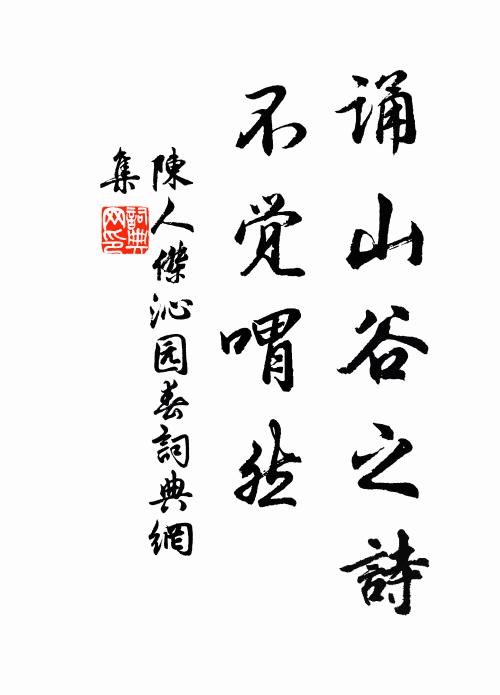 诵山谷之詩
不觉喟然
陳人傑沁园春詞典網
集
詞典
网印